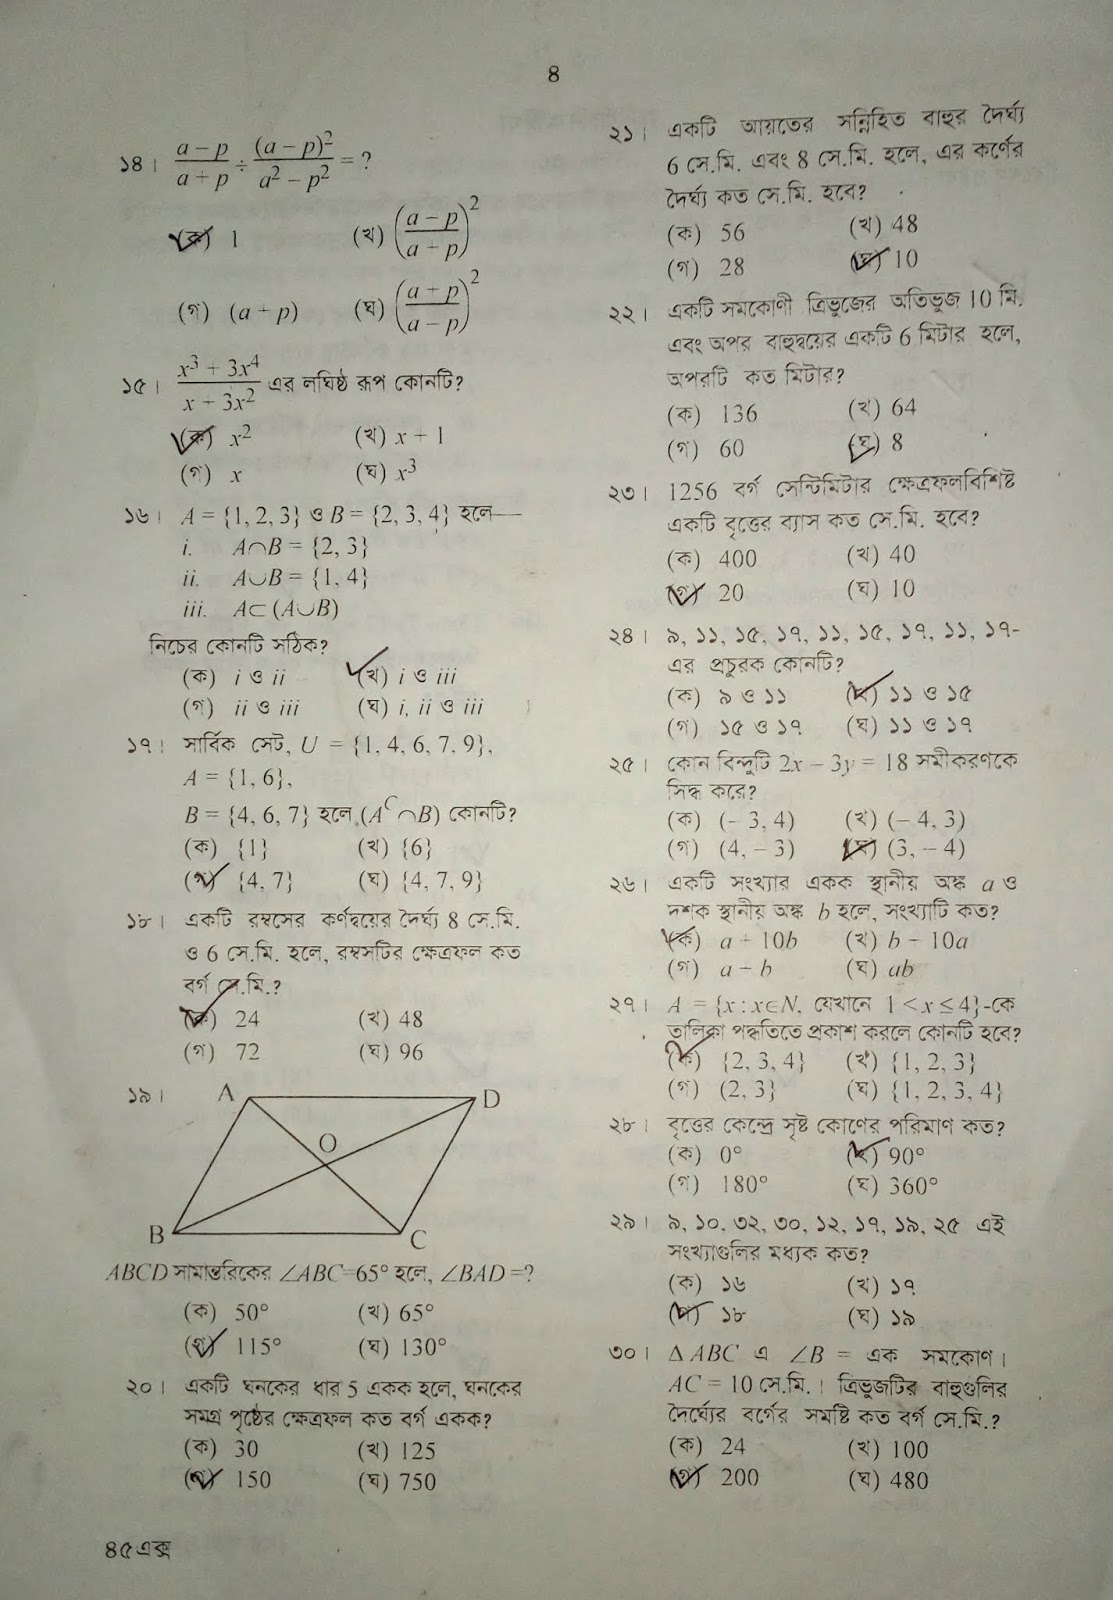 ৪
১৪। \frac{a-p}{a+p} ÷ \frac{(a-p)^2}{a^2-p^2} = ?
(ক) 1 (খ) \left(\frac{a-p}{a+p}\right)^2
(গ) (a + p) (ঘ) \left(\frac{a+p}{a-p}\right)^2
১৫। \frac{x^3+3x^4}{x+3x^2} এর লঘিষ্ঠ রূপ কোনটি?
(ক) x^2 (খ) x + 1
(গ) x (ঘ) x^3
১৬। A = {1, 2, 3} ও B = {2, 3, 4} হলে—
i. A∩B = {2, 3}
ii. A∪B = {1, 4}
iii. A⊂(A∪B)
নিচের কোনটি সঠিক?
(ক) i ও ii (খ) i ও iii
(গ) ii ও iii (ঘ) i, ii ও iii
১৭। সার্বিক সেট, U = {1, 4, 6, 7, 9},
A = {1, 6},
B = {4, 6, 7} হলে, (A^C∩B) কোনটি?
(ক) {1} (খ) {6}
(গ) {4, 7} (ঘ) {4, 7, 9}
১৮। একটি রম্বসের কর্ণদ্বয়ের দৈর্ঘ্য 8 সে.মি.
ও 6 সে.মি. হলে, রম্বসটির ক্ষেত্রফল কত
বর্গ সে.মি.?
(ক) 24 (খ) 48
(গ) 72 (ঘ) 96
১৯। A D
O
B C
ABCD সামান্তরিকের ∠ABC=65° হলে, ∠BAD =?
(ক) 50° (খ) 65°
(গ) 115° (ঘ) 130°
২০। একটি ঘনকের ধার 5 একক হলে, ঘনকের
সমগ্র পৃষ্ঠের ক্ষেত্রফল কত বর্গ একক?
(ক) 30 (খ) 125
(গ) 150 (ঘ) 750
৪৫এক্স
২১। একটি আয়তের সন্নিহিত বাহুর দৈর্ঘ্য
6 সে.মি. এবং 8 সে.মি. হলে, এর কর্ণের
দৈর্ঘ্য কত সে.মি. হবে?
(ক) 56 (খ) 48
(গ) 28 (ঘ) 10
২২। একটি সমকোণী ত্রিভুজের অতিভুজ 10 মি.
এবং অপর বাহুদ্বয়ের একটি 6 মিটার হলে,
অপরটি কত মিটার?
(ক) 136 (খ) 64
(গ) 60 (ঘ) 8
২৩। 1256 বর্গ সেন্টিমিটার ক্ষেত্রফলবিশিষ্ট
একটি বৃত্তের ব্যাস কত সে.মি. হবে?
(ক) 400 (খ) 40
(গ) 20 (ঘ) 10
২৪। ৯, ১১, ১৫, ১৭, ১১, ১৫, ১৭, ১১, ১৭-
এর প্রচুরক কোনটি?
(ক) ৯ ও ১১ (খ) ১১ ও ১৫
(গ) ১৫ ও ১৭ (ঘ) ১১ ও ১৭
২৫। কোন বিন্দুটি 2x – 3y = 18 সমীকরণকে
সিদ্ধ করে?
(ক) (– 3, 4) (খ) (– 4, 3)
(গ) (4, – 3) (ঘ) (3, – 4)
২৬। একটি সংখ্যার একক স্থানীয় অঙ্ক a ও
দশক স্থানীয় অঙ্ক b হলে, সংখ্যাটি কত?
(ক) a + 10b (খ) b + 10a
(গ) a + b (ঘ) ab
২৭। A = {x : x∈N, যেখানে 1 < x ≤ 4}-কে
তালিকা পদ্ধতিতে প্রকাশ করলে কোনটি হবে?
(ক) {2, 3, 4} (খ) {1, 2, 3}
(গ) (2, 3} (ঘ) {1, 2, 3, 4}
২৮। বৃত্তের কেন্দ্রে সৃষ্ট কোণের পরিমাণ কত?
(ক) 0° (খ) 90°
(গ) 180° (ঘ) 360°
২৯। ৯, ১০, ৩২, ৩০, ১২, ১৭, ১৯, ২৫ এই
সংখ্যাগুলির মধ্যক কত?
(ক) ১৬ (খ) ১৭
(গ) ১৮ (ঘ) ১৯
৩০। Δ ABC এ ∠B = এক সমকোণ।
AC = 10 সে.মি.। ত্রিভুজটির বাহুগুলির
দৈর্ঘ্যের বর্গের সমষ্টি কত বর্গ সে.মি.?
(ক) 24 (খ) 100
(গ) 200 (ঘ) 480